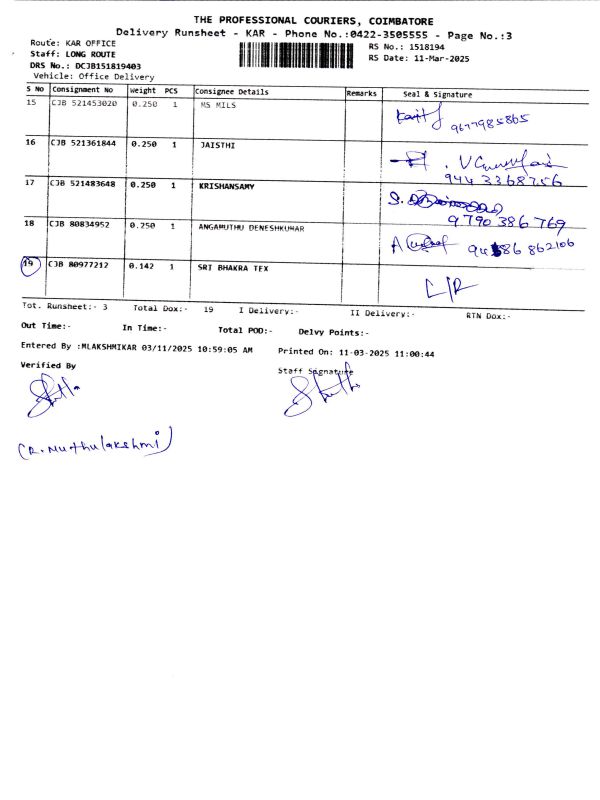 THE PROFESSIONAL COURIERS, COIMBATORE
Delivery Runsheet - KAR - Phone No.:0422-3505555 - Page No.:3
Route: KAR OFFICE
RS No.: 1518194
Staff: LONG ROUTE
RS Date: 11-Mar-2025
DRS No.: DCJB151819403
Vehicle: Office Delivery
S No Consignment No Weight PCS Consignee Details Remarks Seal & Signature
15 CJB 521453020 0.250 1 MS MILS
9677985865
16 CJB 521361844 0.250 1 JAISTHI
944 3368756
17 CJB 521483648 0.250 1 KRISHANSAMY
9790 386 769
18 CJB 80834952 0.250 1 ANGAMUTHU DENESHKUMAR
862106
19 CJB 80977212 0.142 1 SRI BHAKRA TEX
C/R
Tot. Runsheet:- 3 Total Dox:- 19 I Delivery:- II Delivery:- RTN Dox:-
Out Time:- In Time:- Total POD:- Delvy Points:-
Entered By :MLAKSHMIKAR 03/11/2025 10:59:05 AM Printed On: 11-03-2025 11:00:44
Verified By Staff Signature
(R. Muthulakshmi)